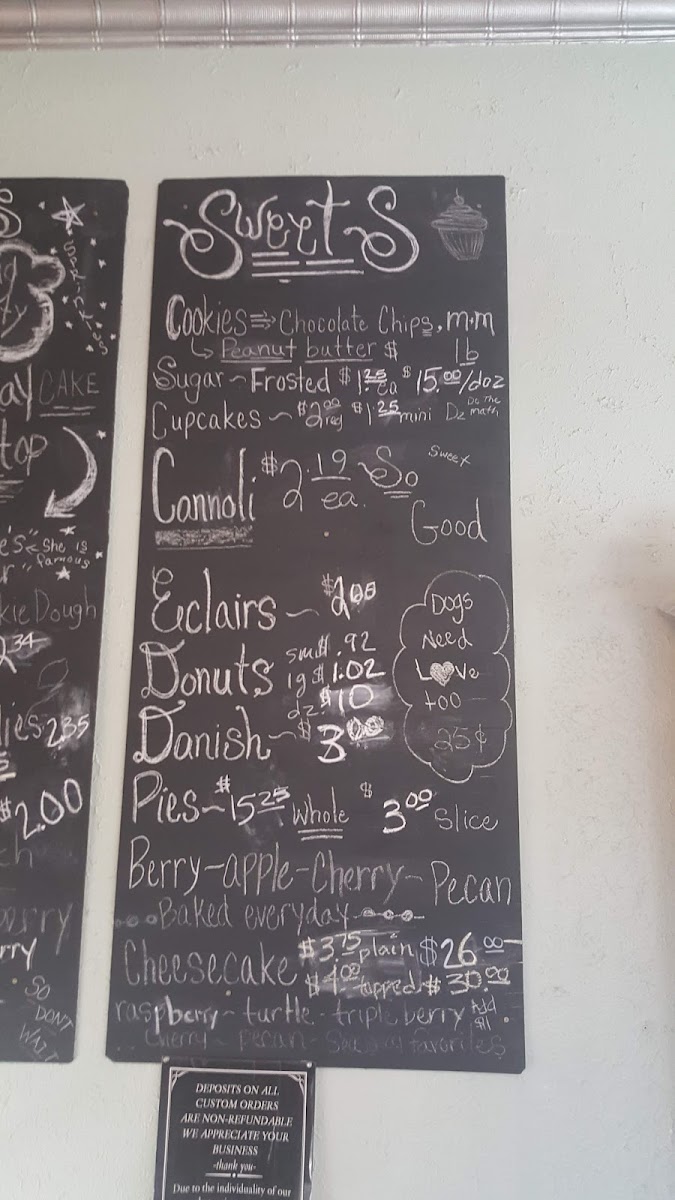 CAKE
top
She is
famous
kie Dough
2.35
$2.00
SO
DON'T
WAIT
Sweet S
Cookies ⇒ Chocolate Chips, m·m
↳ Peanut butter $ lb
Sugar ~ Frosted $1.25 ea $15.00/doz
Cupcakes ~ $2.00 reg $1.25 mini Dz Do the math
Cannoli $2.19 ea. So
Sweex
Good
Eclairs ~ $2.00
Donuts sm $.92
lg $1.02
dz. $10
Danish ~ $3.00
Dogs
Need
Love
too
25¢
Pies ~ $15.25 Whole $3.00 Slice
Berry - apple - Cherry - Pecan
Baked everyday
Cheesecake $3.75 plain $26.00
$4.00 topped $30.00
raspberry - turtle - triple berry Add $1.
Cherry - pecan - favorites
DEPOSITS ON ALL
CUSTOM ORDERS
ARE NON-REFUNDABLE
WE APPRECIATE YOUR
BUSINESS
-thank you-
Due to the individuality of our